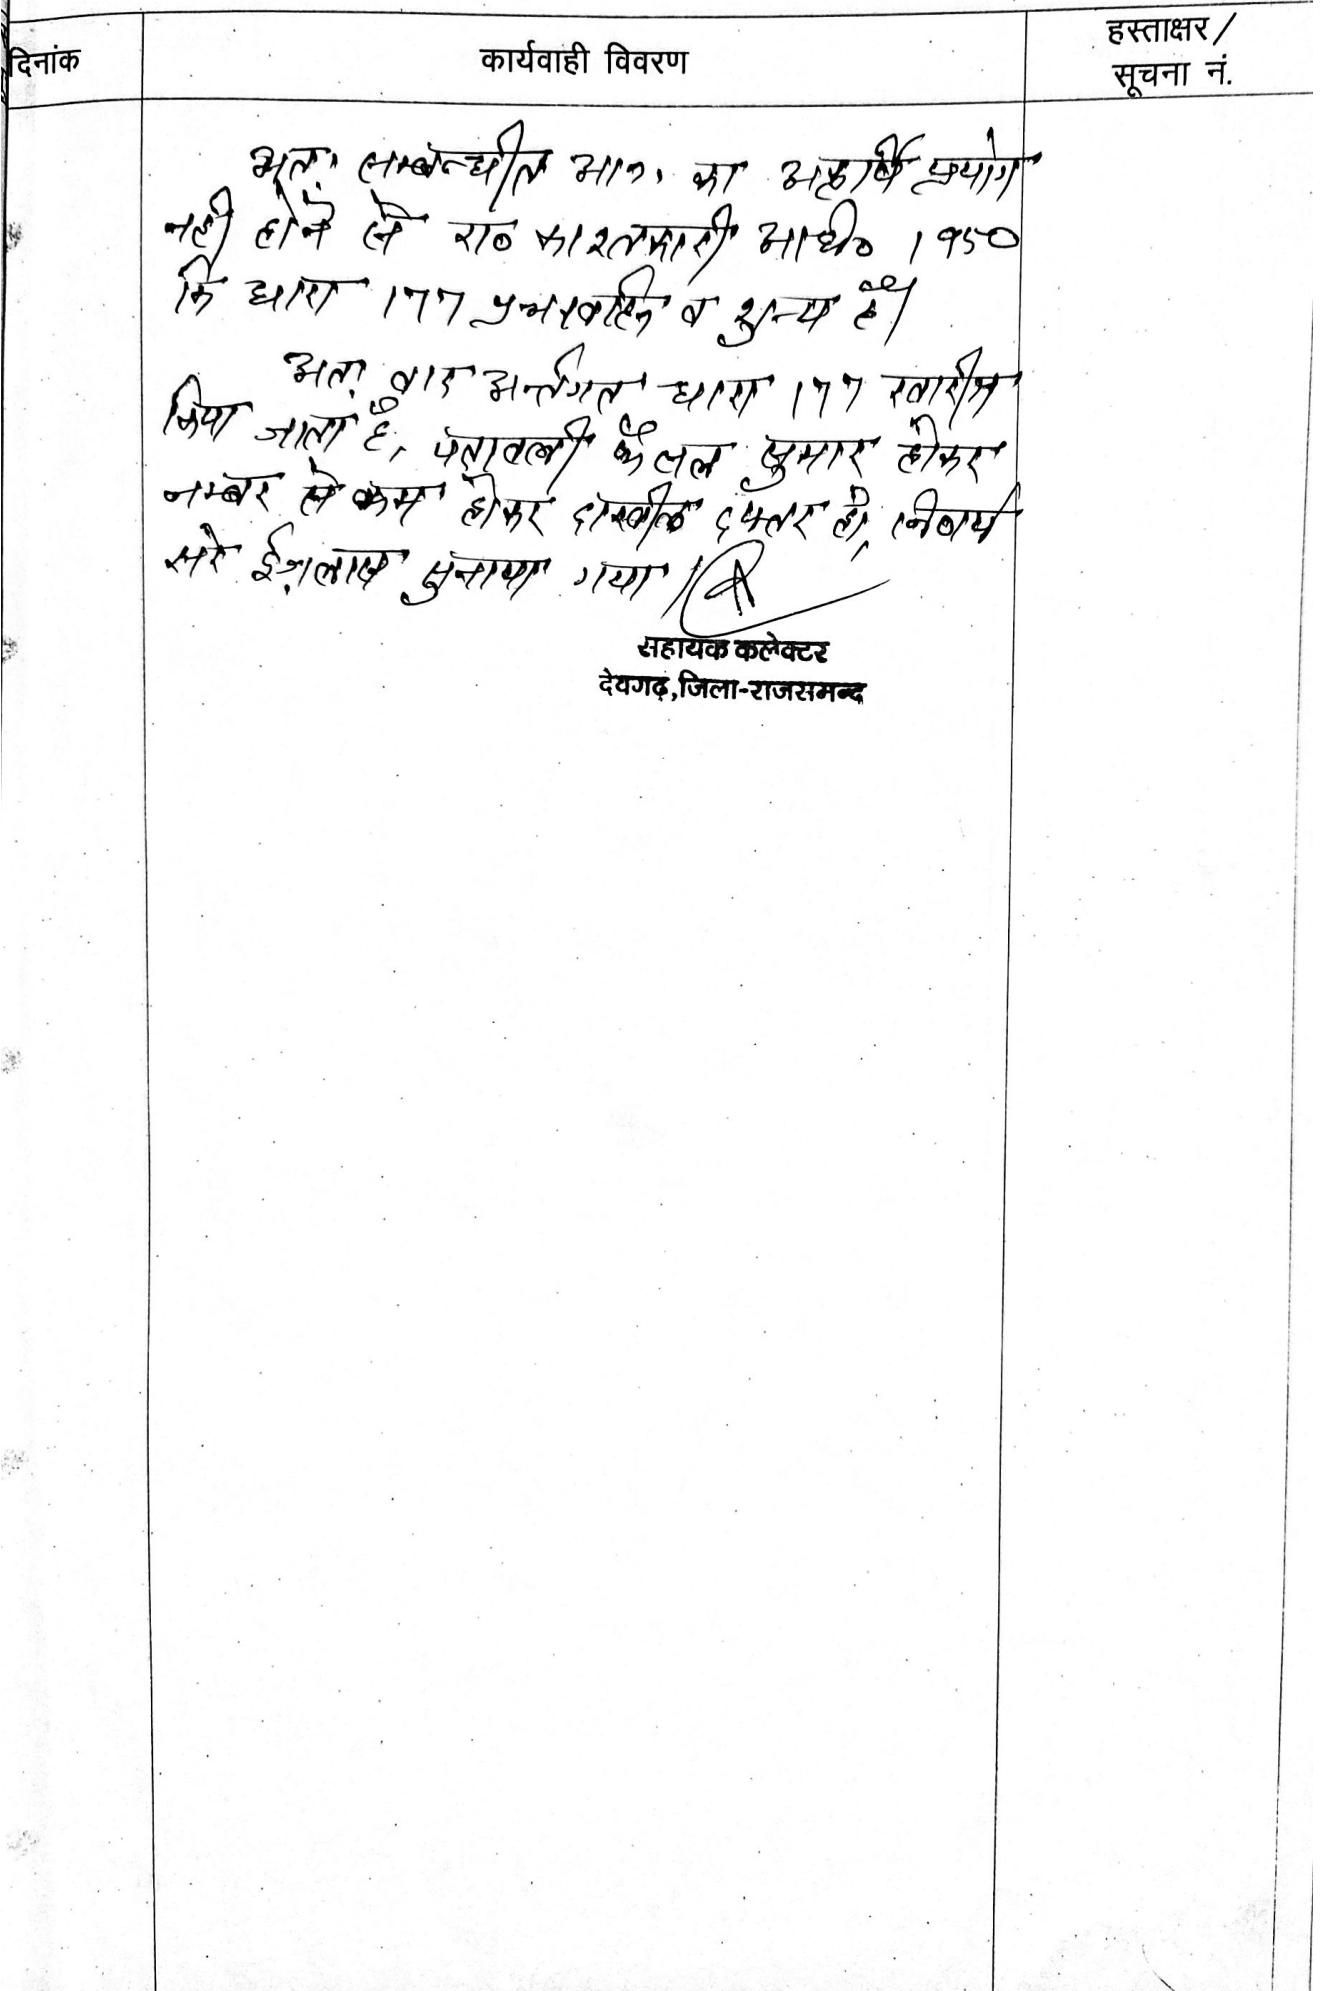 दिनांक
कार्यवाही विवरण
हस्ताक्षर/
सूचना नं.
अतः सम्बन्धीत आ० का अकृषि प्रयोग
नही होने से रा० काश्तकारी अधि० 1950
कि धारा 177 प्रभावहिन व शुन्य है।
अतः वाद अर्न्तगत धारा 177 खारीज
किया जाता है, पत्रावली फैसल सुमार होकर
नम्बर से कम होकर दाखील दफ्तर हो, निर्णय
सरे ईजलास सुनाया गया।
सहायक कलेक्टर
देवगढ़,जिला-राजसमन्द